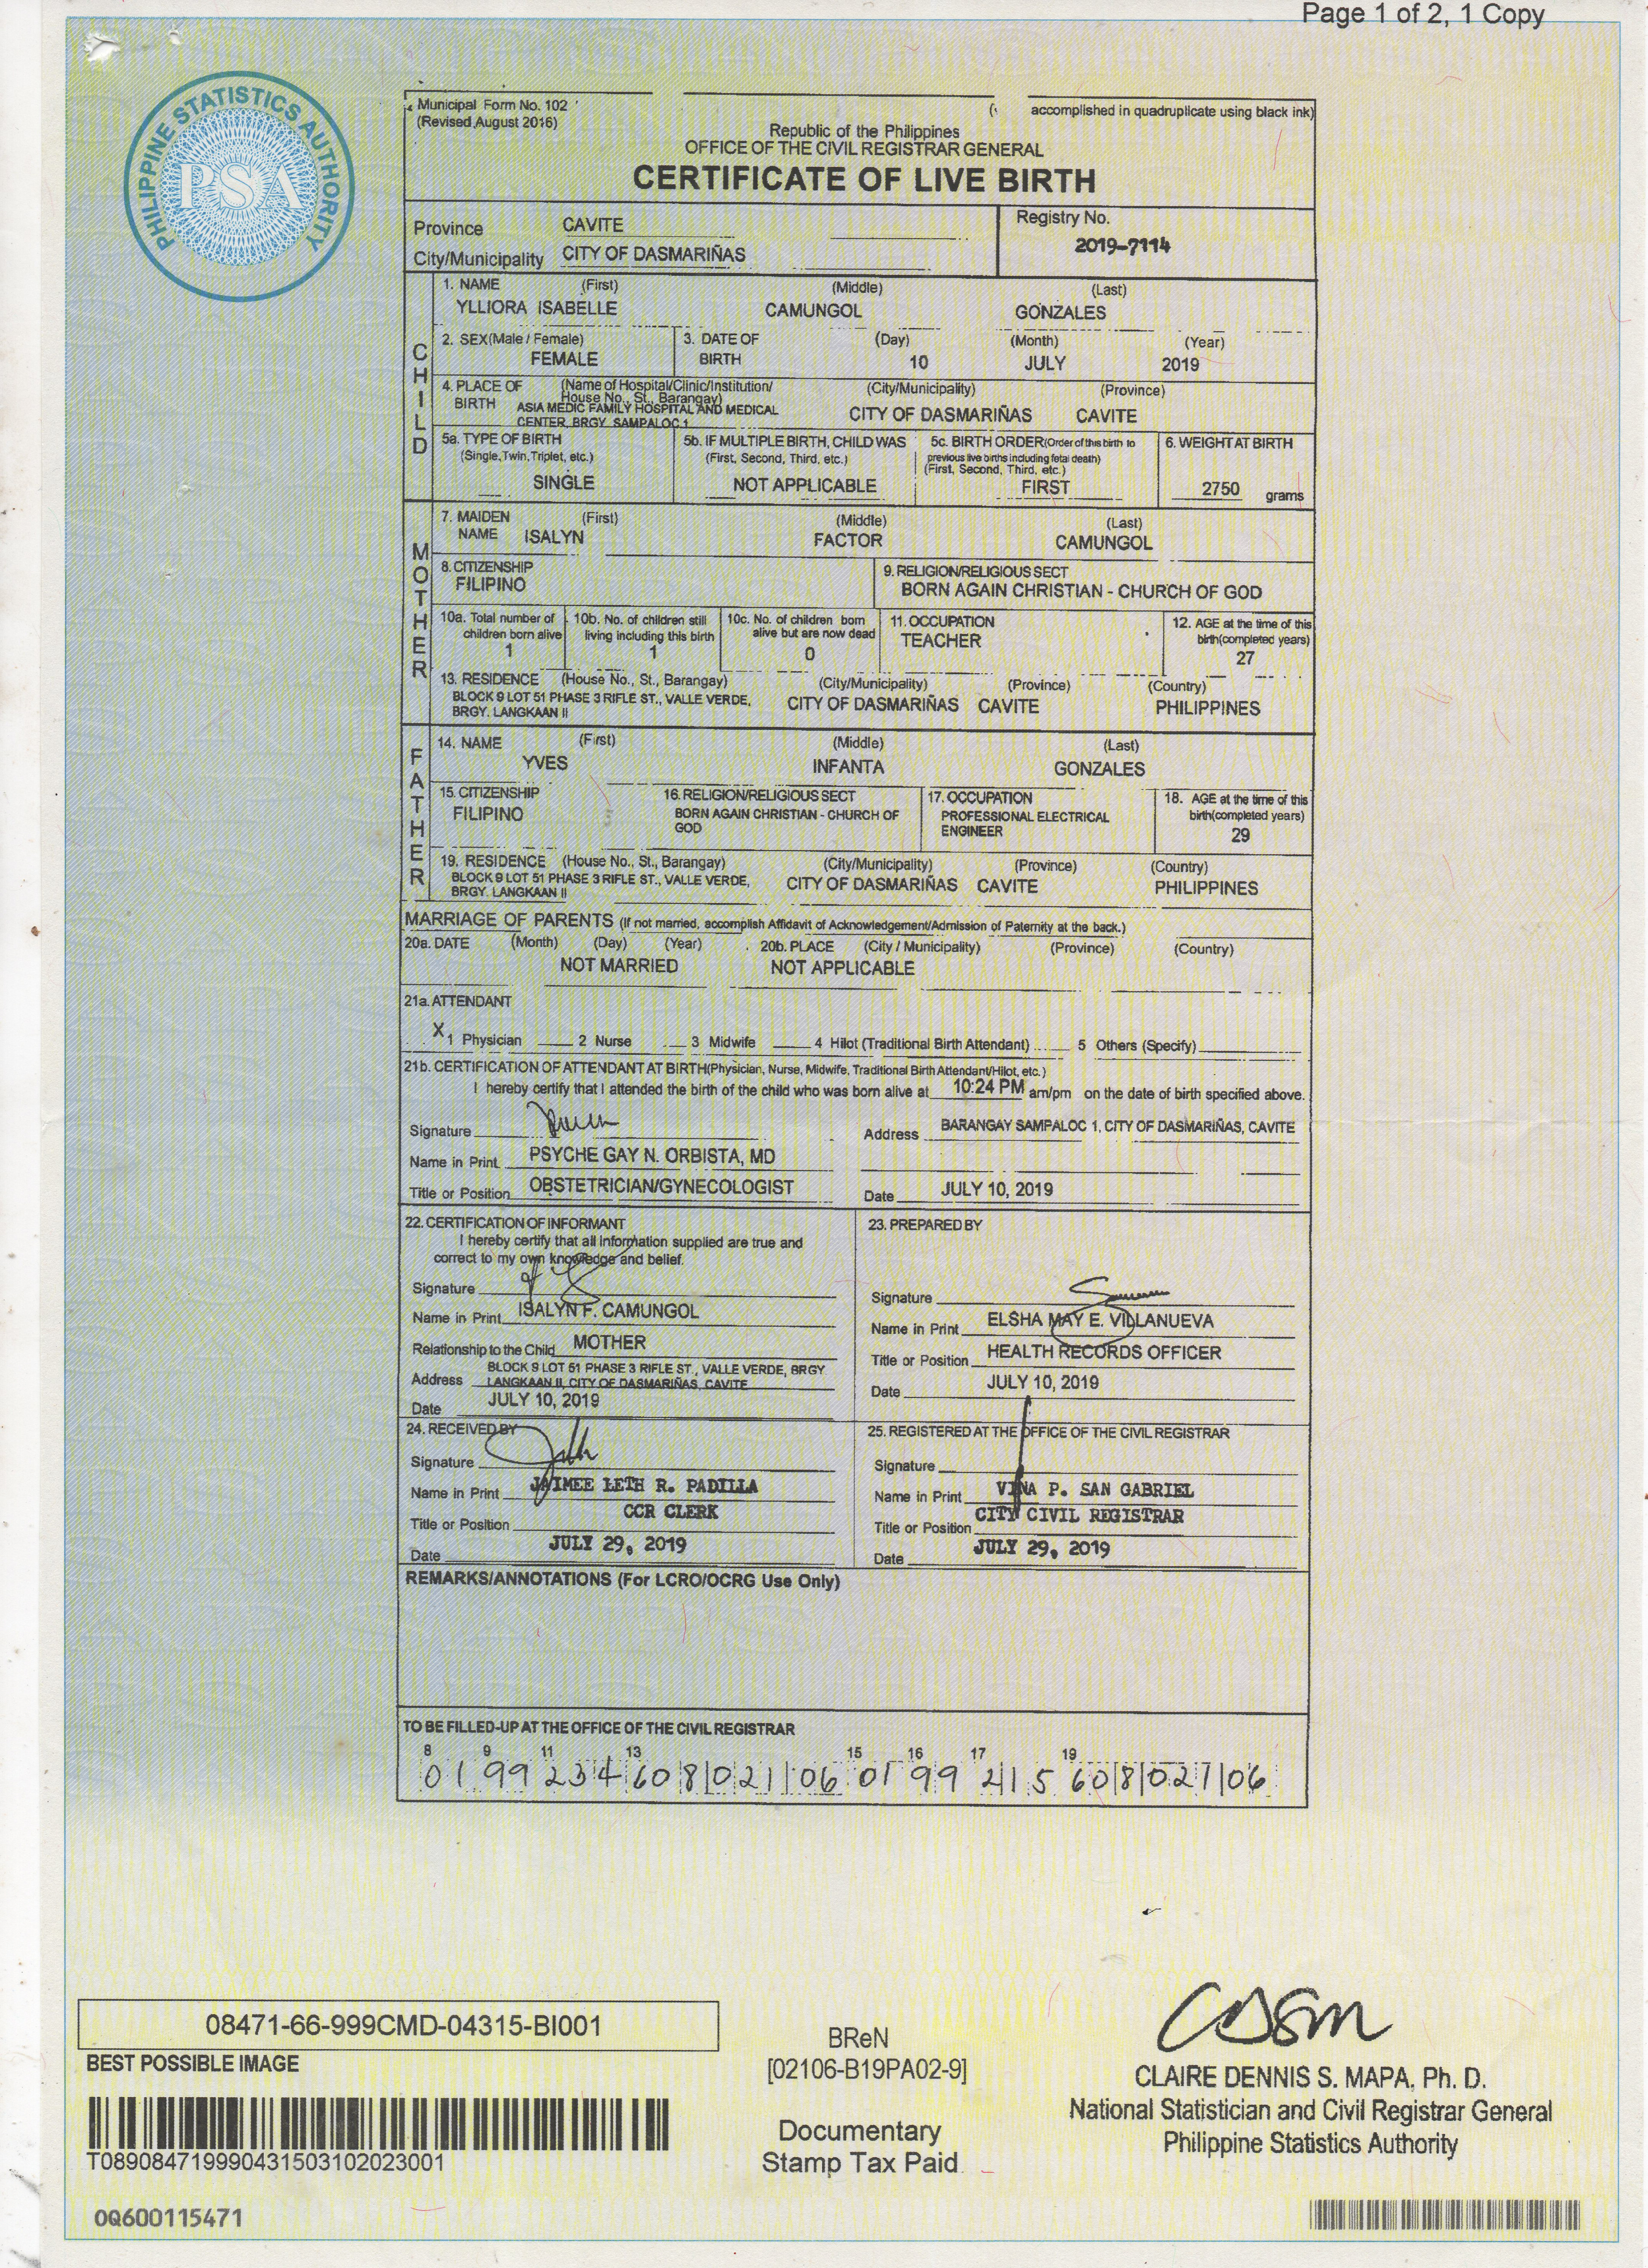 Page 1 of 2, 1 Copy
PHILIPPINE STATISTICS AUTHORITY
PSA
Municipal Form No. 102
(Revised August 2016)
accomplished in quadruplicate using black ink)
Republic of the Philippines
OFFICE OF THE CIVIL REGISTRAR GENERAL
CERTIFICATE OF LIVE BIRTH
Province CAVITE
City/Municipality CITY OF DASMARIÑAS
Registry No.
2019-7114
CHILD
1. NAME (First) (Middle) (Last)
YLLIORA ISABELLE CAMUNGOL GONZALES
2. SEX(Male / Female) 3. DATE OF (Day) (Month) (Year)
FEMALE BIRTH 10 JULY 2019
4. PLACE OF (Name of Hospital/Clinic/Institution/ (City/Municipality) (Province)
House No., St., Barangay)
BIRTH ASIA MEDIC FAMILY HOSPITAL AND MEDICAL CITY OF DASMARIÑAS CAVITE
CENTER, BRGY. SAMPALOC 1
5a. TYPE OF BIRTH 5b. IF MULTIPLE BIRTH, CHILD WAS 5c. BIRTH ORDER(Order of this birth to 6. WEIGHT AT BIRTH
(Single,Twin,Triplet, etc.) (First, Second, Third, etc.) previous live births including fetal death)
(First, Second, Third, etc.)
SINGLE NOT APPLICABLE FIRST 2750 grams
MOTHER
7. MAIDEN (First) (Middle) (Last)
NAME ISALYN FACTOR CAMUNGOL
8. CITIZENSHIP 9. RELIGION/RELIGIOUS SECT
FILIPINO BORN AGAIN CHRISTIAN - CHURCH OF GOD
10a. Total number of 10b. No. of children still 10c. No. of children born 11. OCCUPATION 12. AGE at the time of this
children born alive living including this birth alive but are now dead TEACHER birth(completed years)
1 1 0 27
13. RESIDENCE (House No., St., Barangay) (City/Municipality) (Province) (Country)
BLOCK 9 LOT 51 PHASE 3 RIFLE ST., VALLE VERDE, CITY OF DASMARIÑAS CAVITE PHILIPPINES
BRGY. LANGKAAN II
FATHER
14. NAME (First) (Middle) (Last)
YVES INFANTA GONZALES
15. CITIZENSHIP 16. RELIGION/RELIGIOUS SECT 17. OCCUPATION 18. AGE at the time of this
FILIPINO BORN AGAIN CHRISTIAN - CHURCH OF PROFESSIONAL ELECTRICAL birth(completed years)
GOD ENGINEER 29
19. RESIDENCE (House No., St., Barangay) (City/Municipality) (Province) (Country)
BLOCK 9 LOT 51 PHASE 3 RIFLE ST., VALLE VERDE, CITY OF DASMARIÑAS CAVITE PHILIPPINES
BRGY. LANGKAAN II
MARRIAGE OF PARENTS (If not married, accomplish Affidavit of Acknowledgement/Admission of Paternity at the back.)
20a. DATE (Month) (Day) (Year) 20b. PLACE (City / Municipality) (Province) (Country)
NOT MARRIED NOT APPLICABLE
21a. ATTENDANT
X 1 Physician 2 Nurse 3 Midwife 4 Hilot (Traditional Birth Attendant) 5 Others (Specify)
21b. CERTIFICATION OF ATTENDANT AT BIRTH(Physician, Nurse, Midwife, Traditional Birth Attendant/Hilot, etc.)
I hereby certify that I attended the birth of the child who was born alive at 10:24 PM am/pm on the date of birth specified above.
Signature Address BARANGAY SAMPALOC 1, CITY OF DASMARIÑAS, CAVITE
Name in Print PSYCHE GAY N. ORBISTA, MD
Title or Position OBSTETRICIAN/GYNECOLOGIST Date JULY 10, 2019
22. CERTIFICATION OF INFORMANT
I hereby certify that all information supplied are true and
correct to my own knowledge and belief.
Signature
Name in Print ISALYN F. CAMUNGOL
Relationship to the Child MOTHER
BLOCK 9 LOT 51 PHASE 3 RIFLE ST., VALLE VERDE, BRGY
Address LANGKAAN II, CITY OF DASMARIÑAS, CAVITE
Date JULY 10, 2019
23. PREPARED BY
Signature
Name in Print ELSHA MAY E. VILLANUEVA
Title or Position HEALTH RECORDS OFFICER
Date JULY 10, 2019
24. RECEIVED BY
Signature
Name in Print JAIMEE LETH R. PADILLA
Title or Position CCR CLERK
Date JULY 29, 2019
25. REGISTERED AT THE OFFICE OF THE CIVIL REGISTRAR
Signature
Name in Print VINA P. SAN GABRIEL
Title or Position CITY CIVIL REGISTRAR
Date JULY 29, 2019
REMARKS/ANNOTATIONS (For LCRO/OCRG Use Only)
TO BE FILLED-UP AT THE OFFICE OF THE CIVIL REGISTRAR
8 9 11 13 15 16 17 19
01 99 234 60 8 021 06 01 99 215 60 8 021 06
08471-66-999CMD-04315-BI001
BEST POSSIBLE IMAGE
T089084719990431503102023001
0Q600115471
BReN
[02106-B19PA02-9]
Documentary
Stamp Tax Paid
CLAIRE DENNIS S. MAPA, Ph. D.
National Statistician and Civil Registrar General
Philippine Statistics Authority